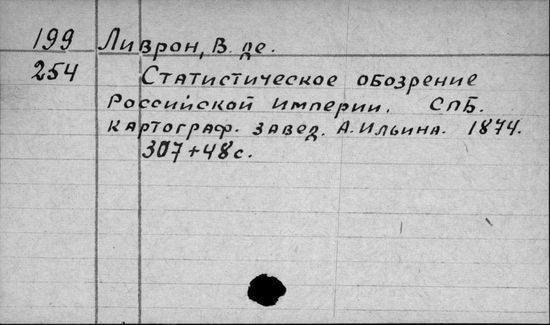 199 Ливрон, В. де.
254 Статистическое обозрение
Российской империи. СПБ.
Картограф. завед. А. Ильина. 1874.
307+48с.